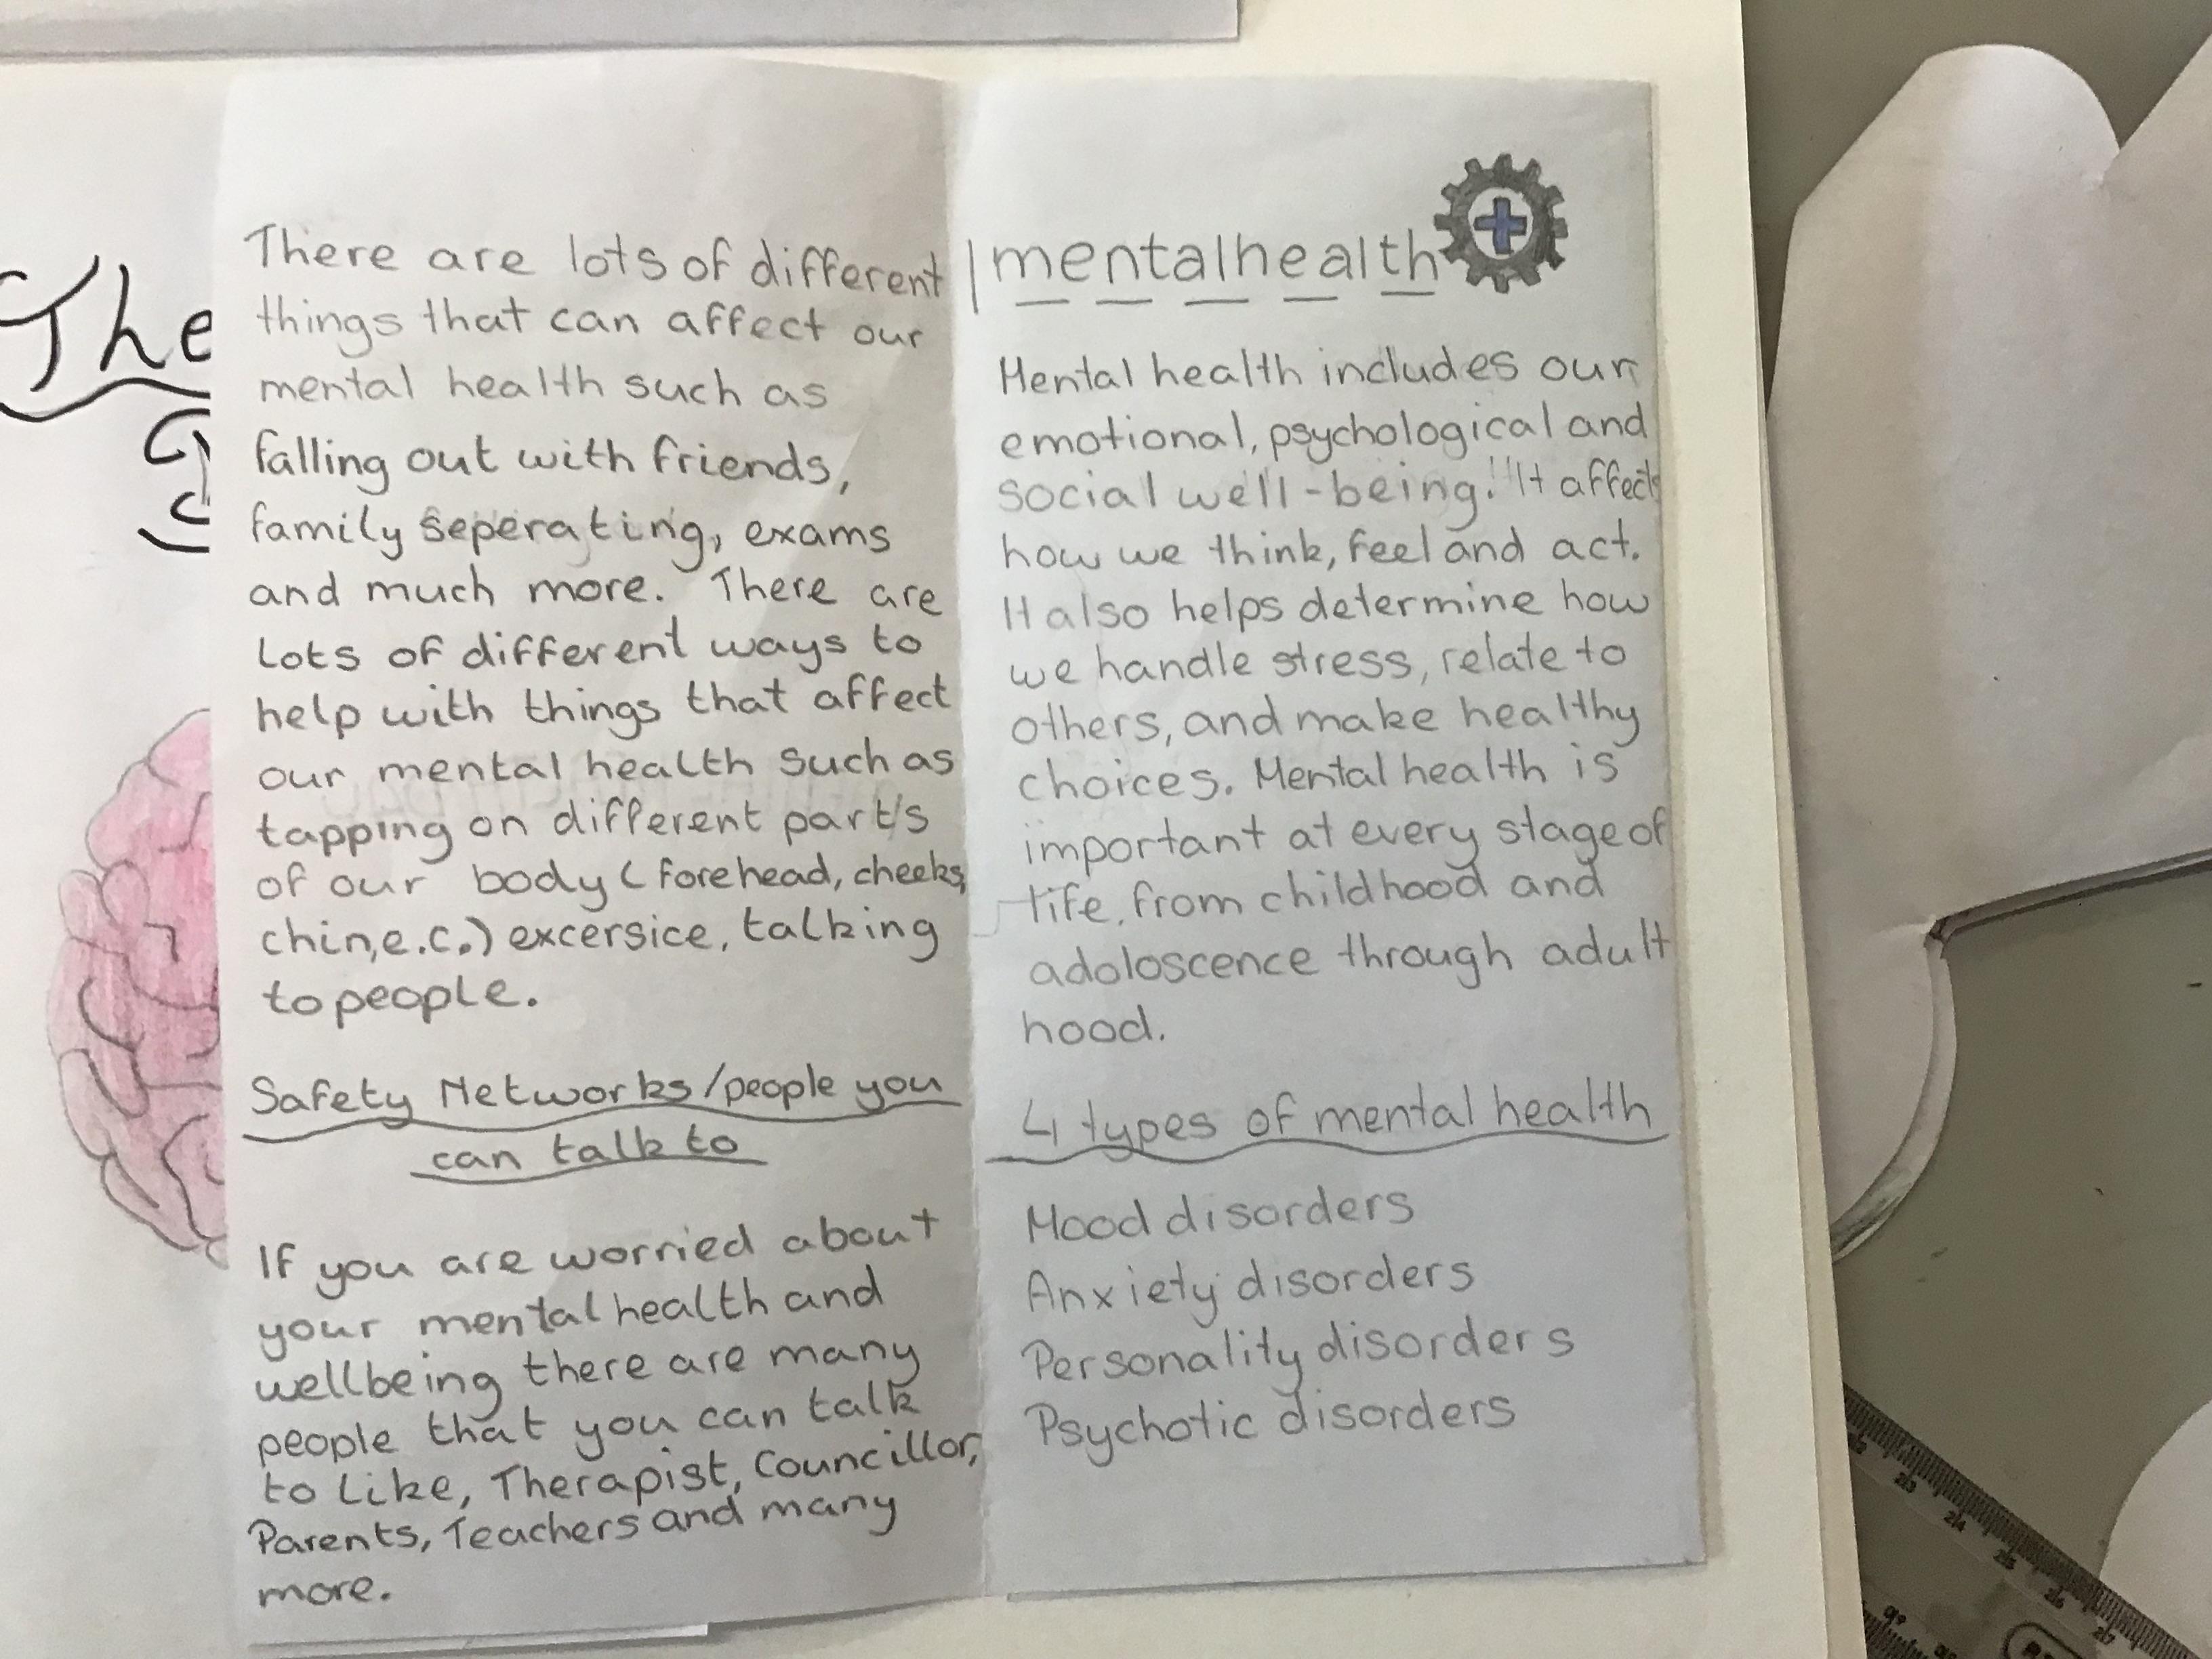 The
There are lots of different
things that can affect our
mental health such as
falling out with friends,
family seperating, exams
and much more. There are
lots of different ways to
help with things that affect
our mental health such as
tapping on different parts
of our body (forehead, cheeks,
chin,e.c.) excersice, talking
to people.
Safety Networks/people you
can talk to
If you are worried about
your mental health and
wellbeing there are many
people that you can talk
to Like, Therapist, Councillor,
Parents, Teachers and many
more.
mentalhealth
Mental health includes our
emotional, psychological and
social well-being. It affects
how we think, feel and act.
It also helps determine how
we handle stress, relate to
others, and make healthy
choices. Mental health is
important at every stage of
life, from childhood and
adoloscence through adult
hood.
4 types of mental health
Mood disorders
Anxiety disorders
Personality disorders
Psychotic disorders
23
24
25
26
27